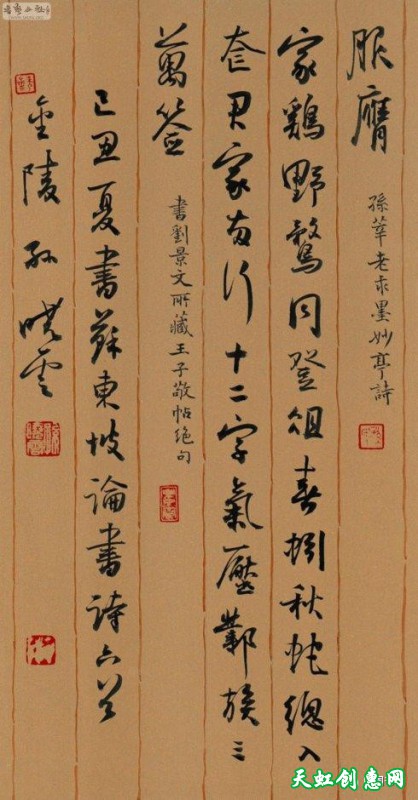 服膺
孫莘老求墨妙亭詩
家鷄野鶩同登俎春蚓秋蛇總入
奁君家兩行十二字氣壓鄴侯三
萬签
書劉景文所藏王子敬帖绝句
己丑夏書蘇東坡論書詩六首
金陵孙晓雲
天虹创惠网